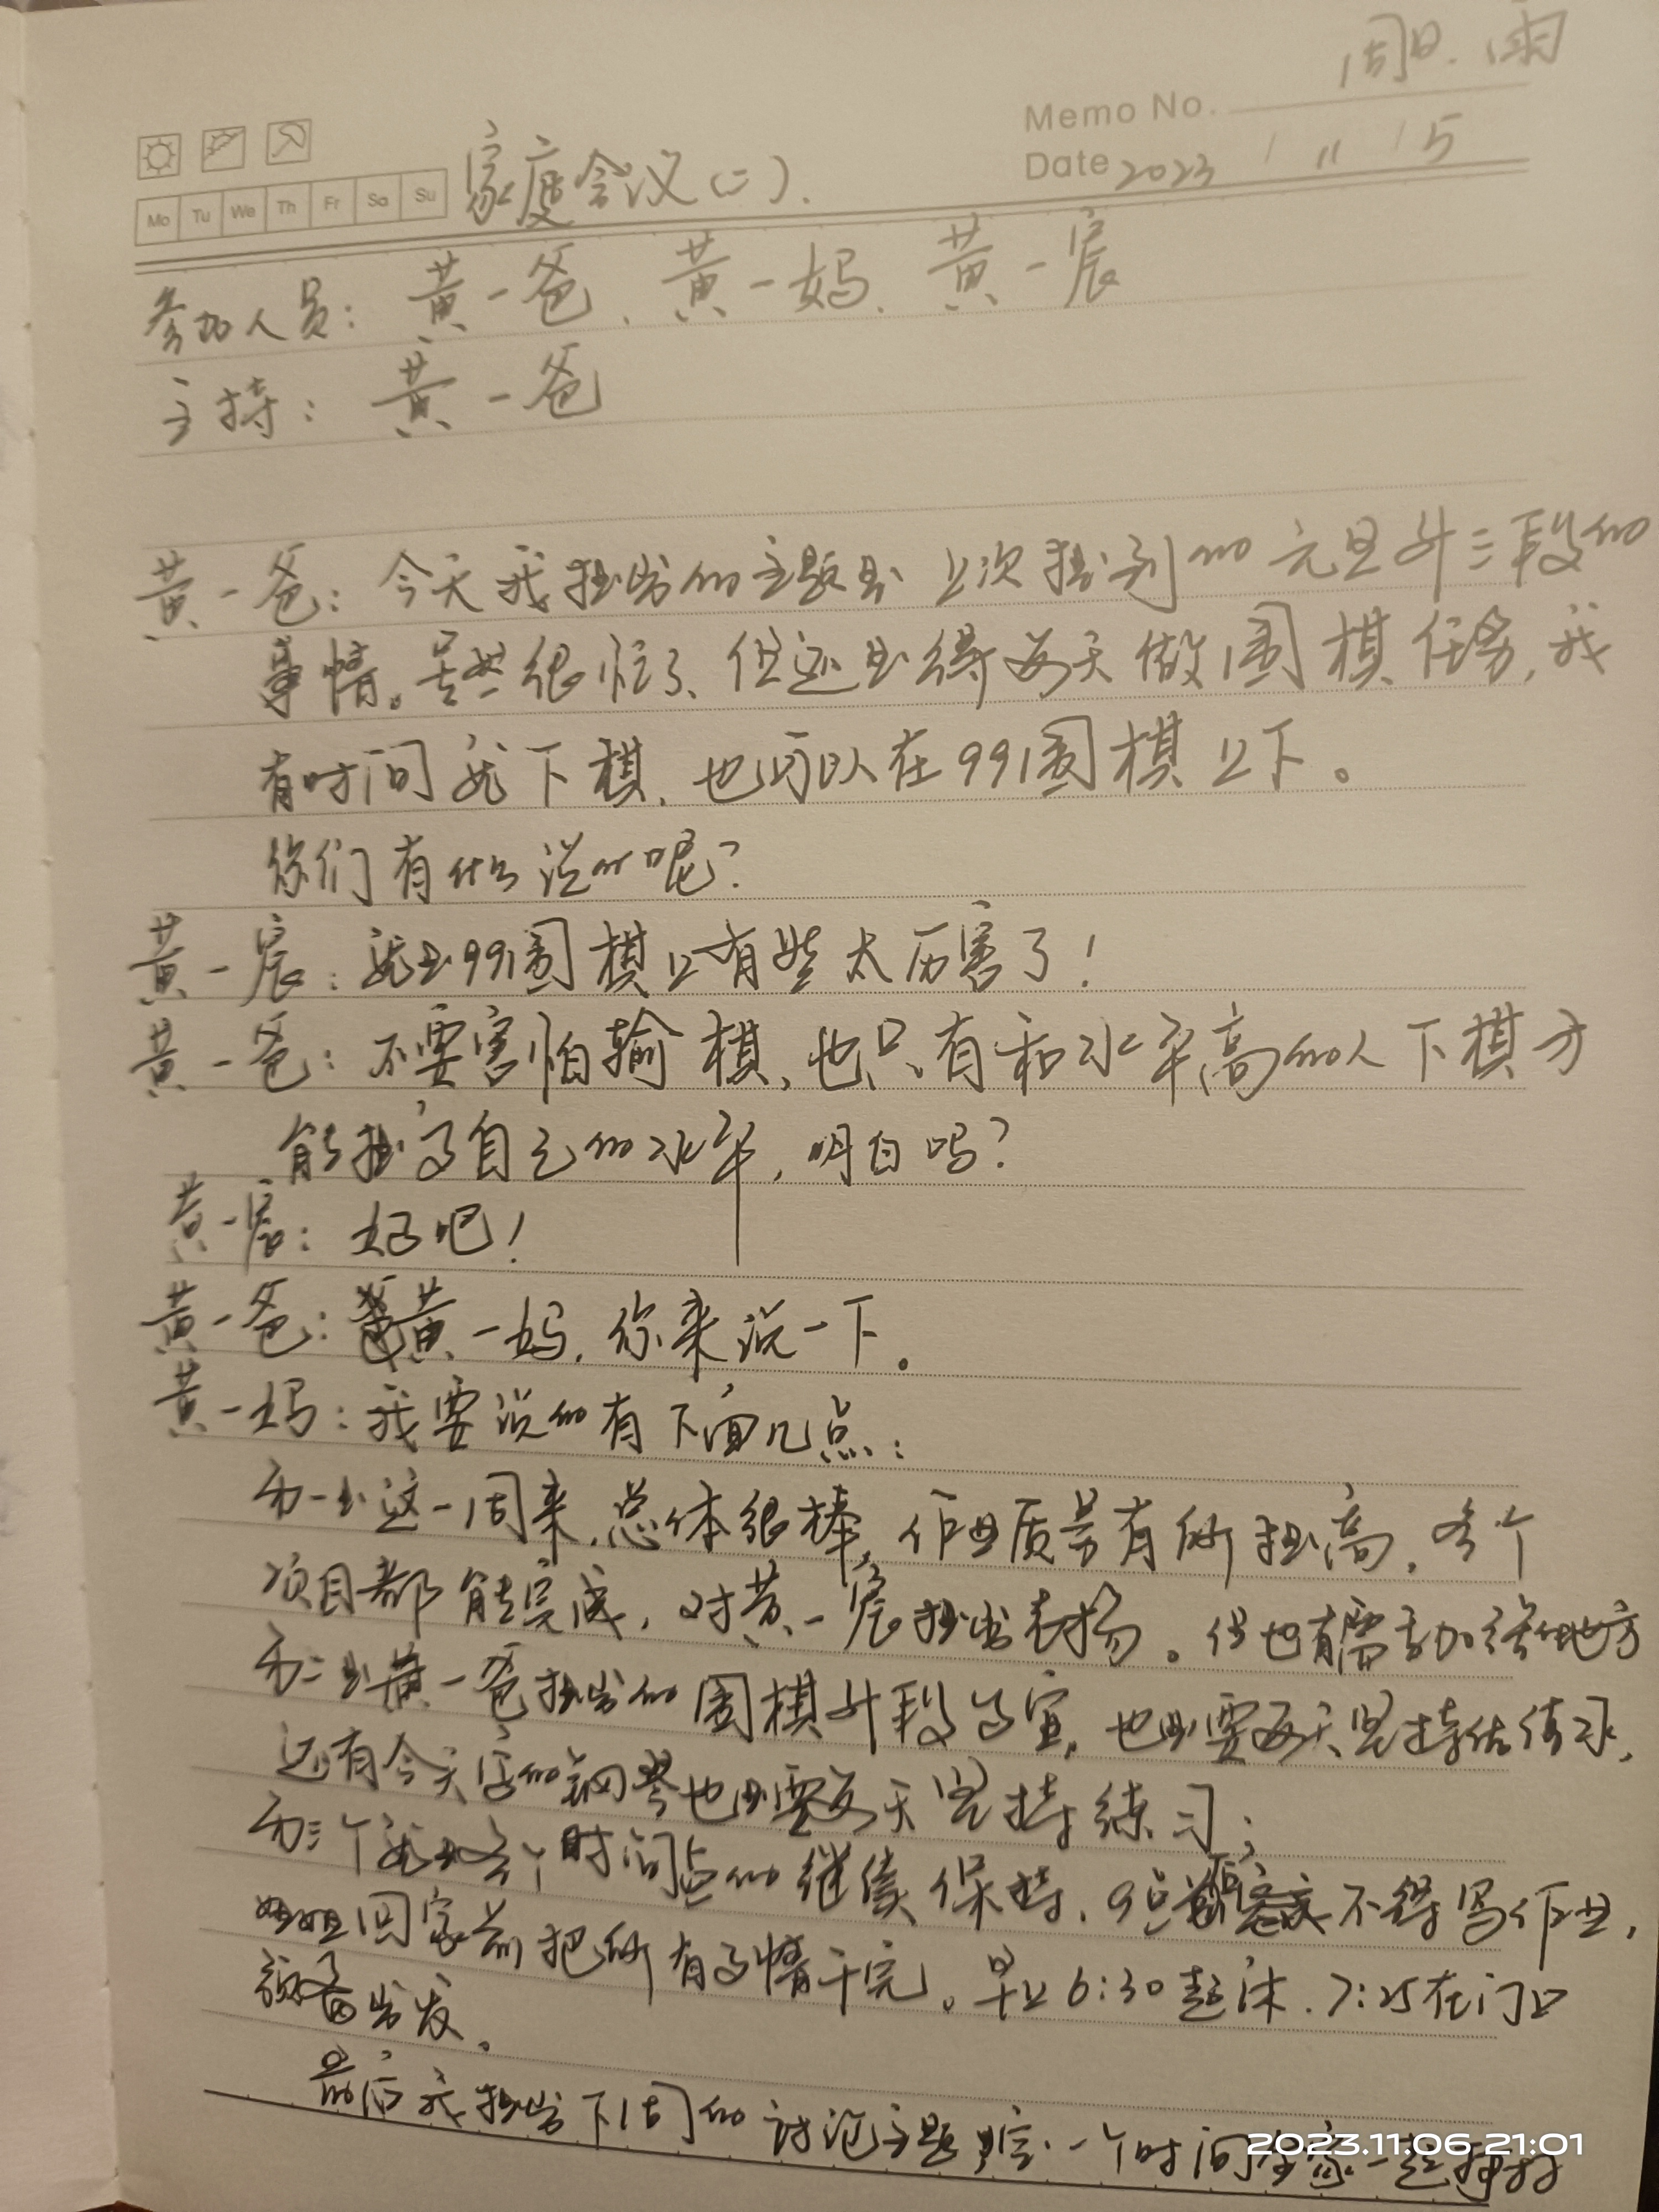 周日.雨
Memo No.
Date 2023 / 11 / 5
Mo Tu We Th Fr Sa Su
家庭会议(二).
参加人员：黄一爸、黄一妈、黄一宸
主持：黄一爸
黄一爸：今天我提出的主题是上次提到的元旦升三段的
事情。虽然很忙了、但还是得每天做围棋任务，我
有时间就下棋，也可以在99围棋上下。
你们有什么说的呢？
黄一宸：就是99围棋上有些太厉害了！
黄一爸：不要害怕输棋，也只有和水平高的人下棋才
能提高自己的水平，明白吗？
黄一宸：好吧！
黄一爸：黄一妈，你来说一下。
黄一妈：我要说的有下面几点：
第一是这一周来，总体很棒，作业质量有所提高，各个
项目都能完成，对黄一宸提出表扬。但也有需要加强的地方
第二是黄一爸提出的围棋升段事宜，也是要每天坚持做练习，
还有今天定的钢琴也是要每天坚持练习；
第三个就是各个时间点的继续保持，9点不得写作业，
姐姐回家前把所有事情干完。早上6:30起床，7:25在门口
预备出发。
最后我提出下周的讨论主题，定一个时间全家一起
2023.11.06 21:01